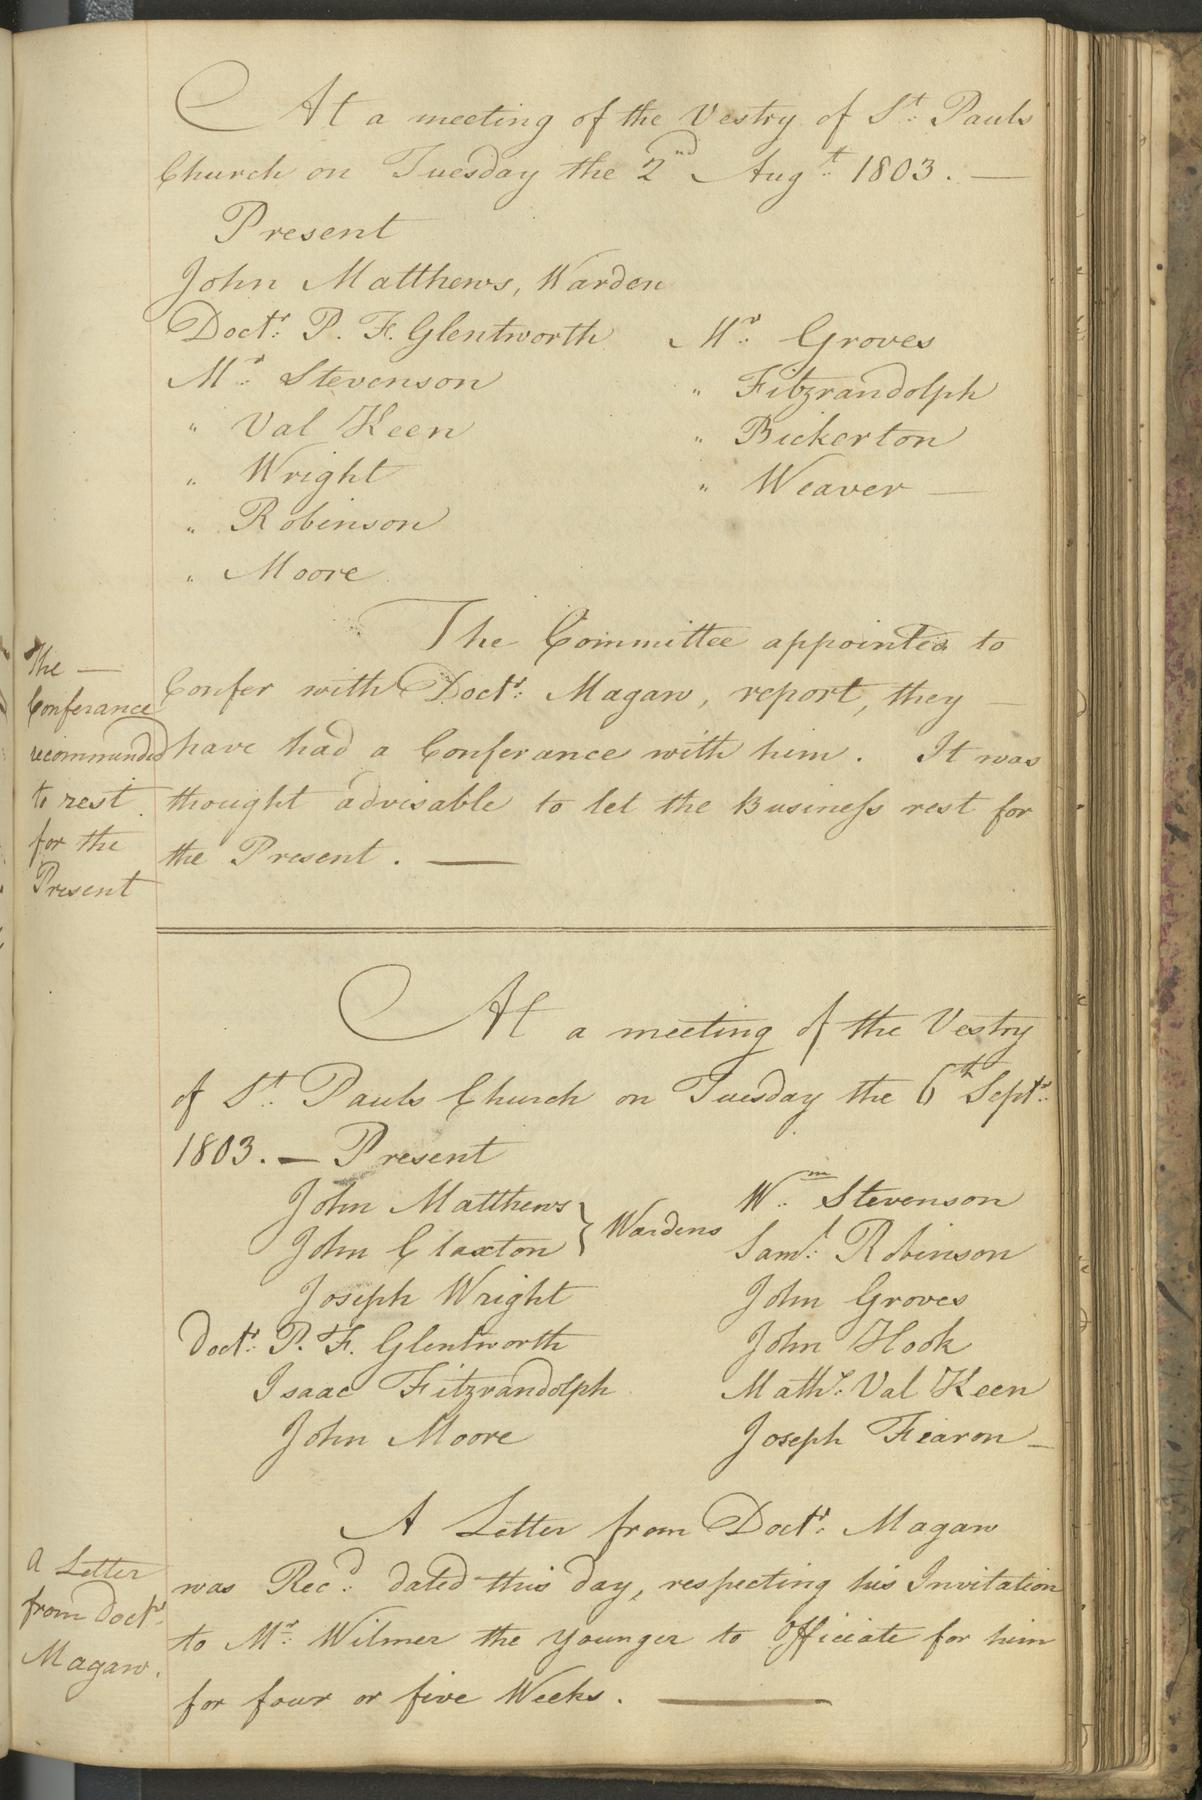 At a meeting of the Vestry of St. Pauls
Church on Tuesday the 2nd Augt. 1803. —
Present
John Matthews, Warden
Doctr. P. F. Glentworth
Mr. Stevenson
" Val Keen
" Wright
" Robinson
" Moore
Mr. Groves
" Fitzrandolph
" Bickerton
" Weaver —
The Committee appointed to
Confer with Doctr. Magaw, report, they —
have had a Conferance with him. It was
thought advisable to let the Business rest for
the Present. —
The —
Conferance
recommended
to rest
for the
Present
At a meeting of the Vestry
of St. Pauls Church on Tuesday the 6th Septr.
1803. — Present
John Matthews
John Claxton } Wardens
Joseph Wright
Doctr. P. F. Glentworth
Isaac Fitzrandolph
John Moore
Wm. Stevenson
Saml. Robinson
John Groves
John Hook
Maths. Val Keen
Joseph Fearon —
A Letter from Doctr. Magaw
was Recd. dated this day, respecting his Invitation
to Mr. Wilmer the younger to Officiate for him
for four or five Weeks. —
A Letter
from Doctr.
Magaw.